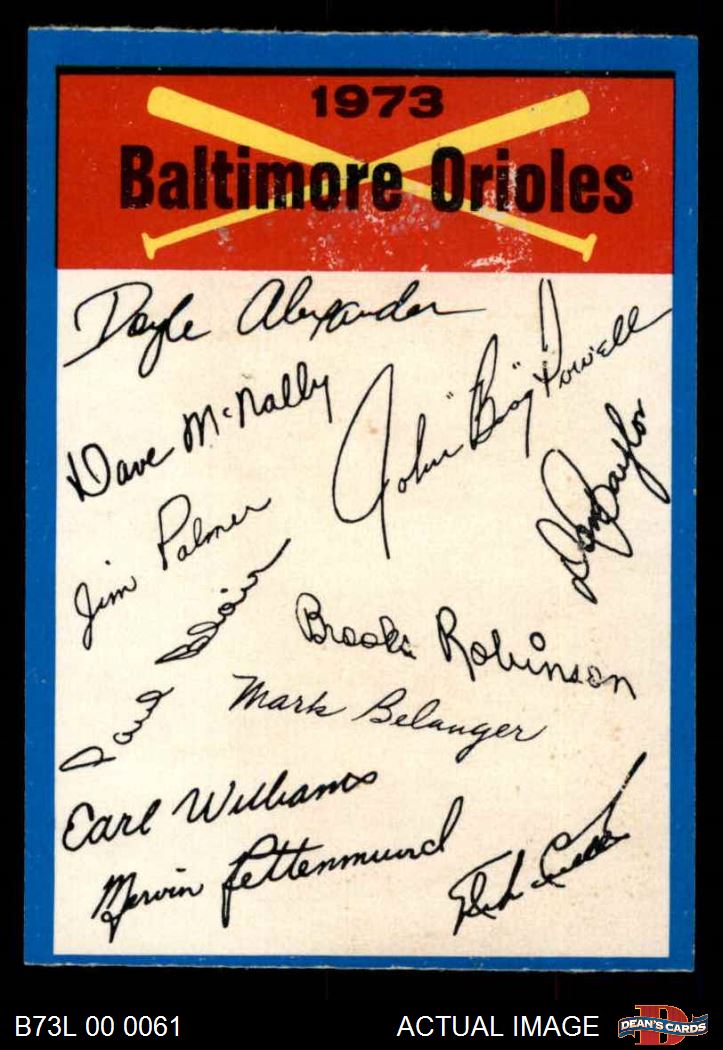 1973
Baltimore Orioles
Doyle Alexander
Dave McNally
John "Boog" Powell
Jim Palmer
Don Baylor
Paul Blair
Brooks Robinson
Mark Belanger
Earl Williams
Mervin Rettenmund
B73L 00 0061
ACTUAL IMAGE
D
DEAN'S CARDS